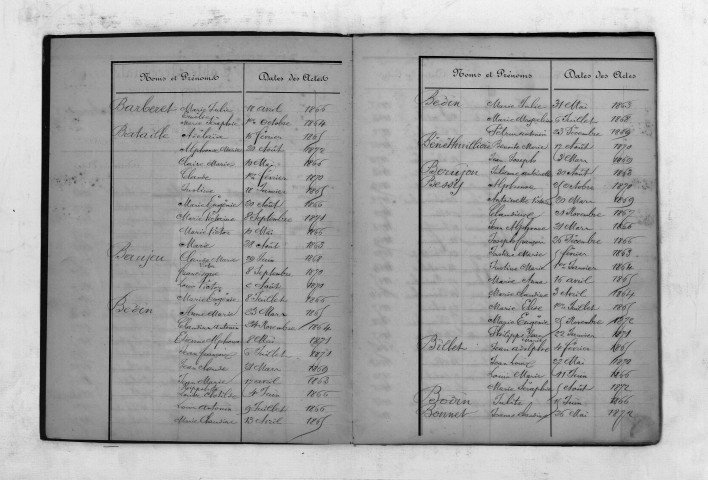 Noms et Prénoms Dates des Actes
Barberet Marie Julie 11 avril 1866
Marie Séraphie 1er Octobre 1864
Bataille 15 février 1865
Alphonse Marie 20 Août 1872
Claire Marie 10 Mai 1866
Claude 1er février 1870
Justine 11 Janvier 1865
Marie Eugénie 20 Août 1866
Marie Victorine 8 Septembre 1871
Marie Victor 12 Mai 1866
Marie 28 Août 1863
Baujeu Claude Marie 29 Juin 1868
Victor
Francisque 8 Septembre 1870
Louis Victor 2 Août 1870
Marie Eugénie 8 Juillet 1866
Bédin Anne Marie 23 Mars 1865
Claudine Antonia 24 Novembre 1864
Alphonse 1er Mai 1871
Jean françois 5 Juillet 1871
Jean Claude 21 Mars 1869
Jean Marie 17 avril 1864
Louise Clotilde 4 Juin 1866
Louis Antonin 9 Juillet 1866
Marie Claudine 13 Avril 1865
Noms et Prénoms Dates des Actes
Bédin Marie Julie 31 Mai 1863
Marie 5 Juillet 1868
23 Décembre 1869
Benoite Marie 17 Août 1870
Jean Joseph 2 Mars 1869
Boujon 20 Août 1868
Bessy Alphonse 2 Octobre 1871
Antoinette 20 Mars 1869
Claudine 21 Novembre 1867
Jean Alphonse 21 Mars 1866
Joseph françois 26 Décembre 1866
Justine Marie 5 février 1863
Justine Marie 1er Janvier 1864
Marie Anna 16 avril 1865
Marie Claudine 3 Avril 1864
Marie Elise 1er Juillet 1865
Marie Eugénie 5 Novembre 1872
Philippe 22 Janvier 1871
Billet Jean Adolphe 4 février 1865
Jean Louis 27 Mai 1870
Louis Marie 11 Juin 1866
Marie Séraphie 5 Août 1872
Bodin 11 Juin 1866
Bonnet 26 Mai 1872